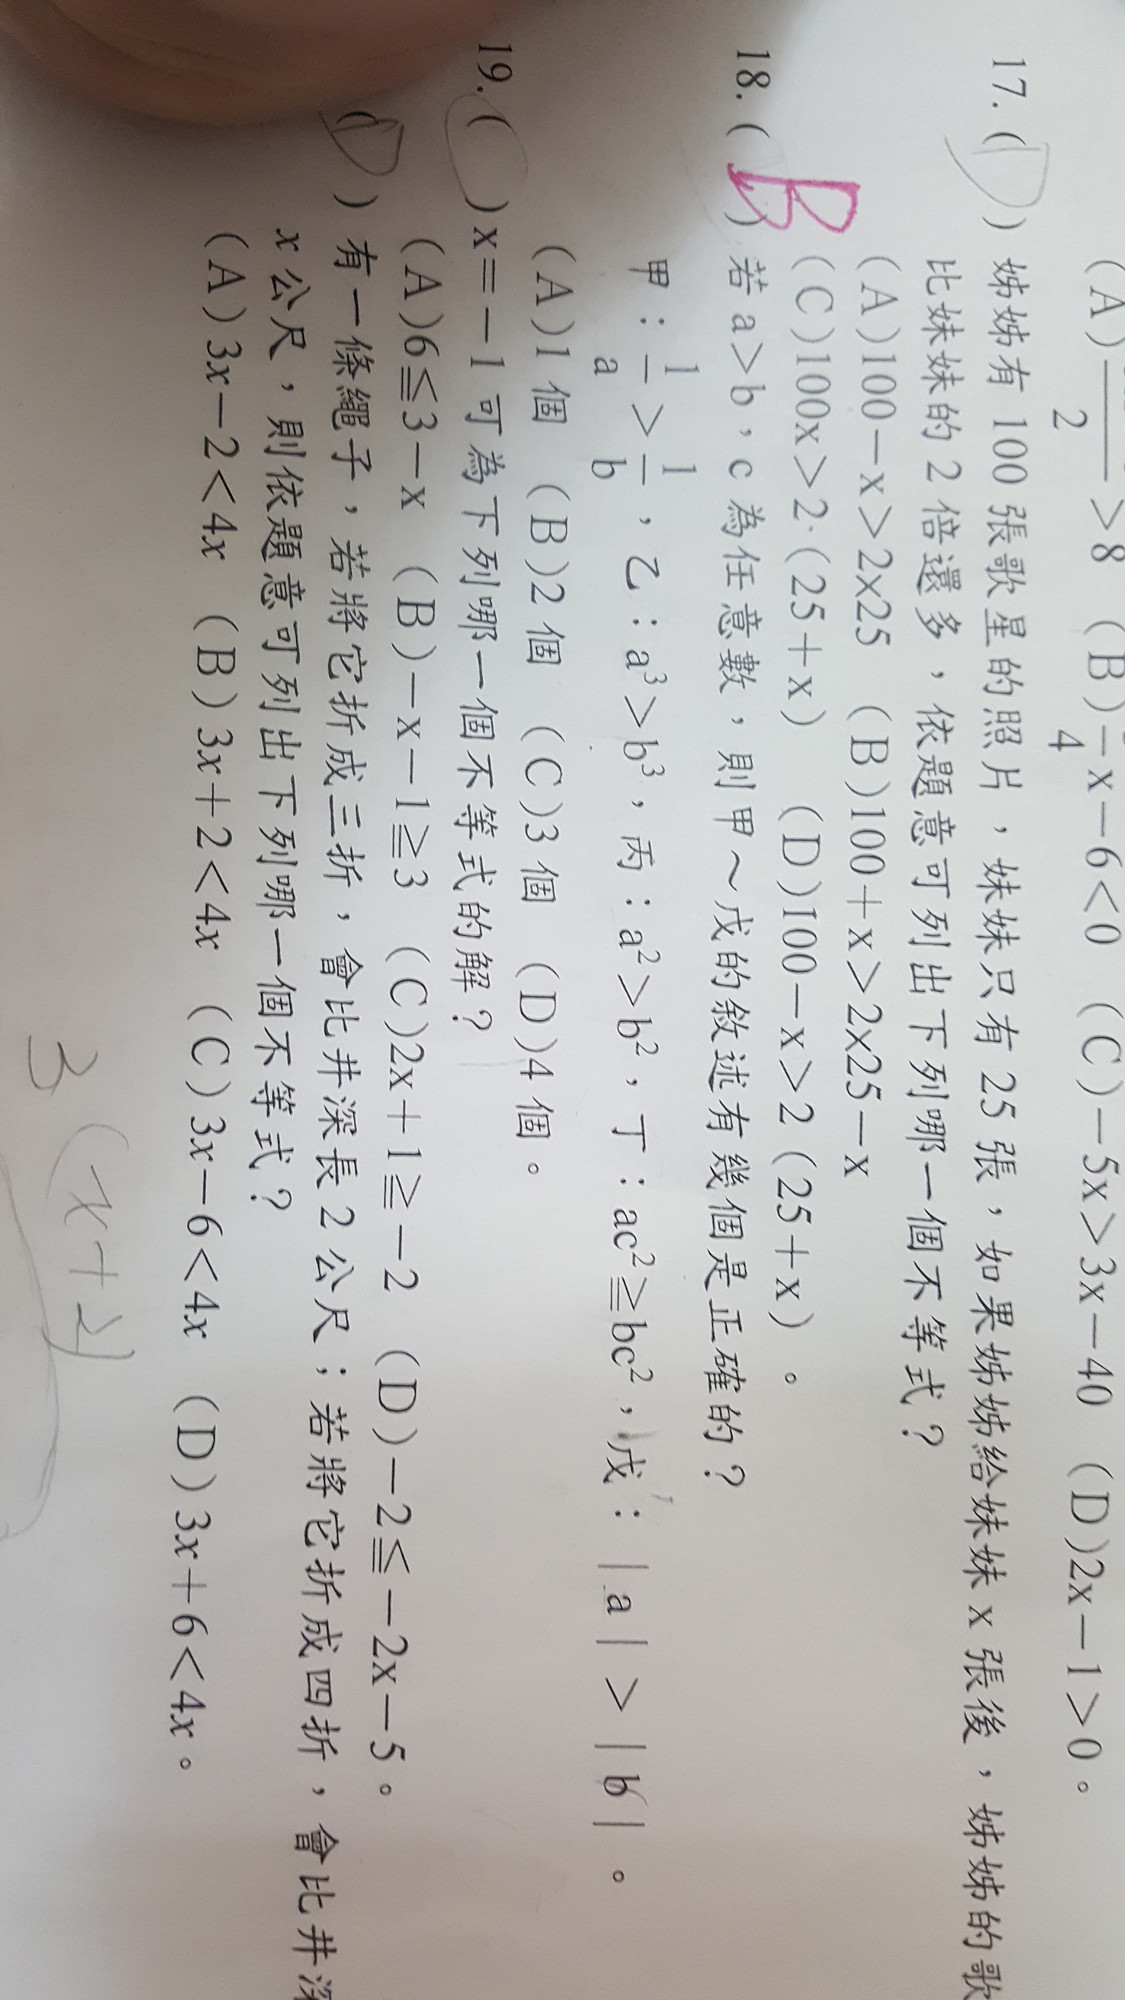 (A)──>8 (B)-x-6<0 (C)-5x>3x-40 (D)2x-1>0。
2 4
17.(D)姊姊有100張歌星的照片，妹妹只有25張，如果姊姊給妹妹x張後，姊姊的歌
比妹妹的2倍還多，依題意可列出下列哪一個不等式？
(A)100-x>2x25 (B)100+x>2x25-x
(C)100x>2·(25+x) (D)100-x>2(25+x)。
18.(B)若a>b，c為任意數，則甲～戊的敘述有幾個是正確的？
甲：1/a>1/b，乙：a³>b³，丙：a²>b²，丁：ac²≧bc²，戊：|a|>|b|。
(A)1個 (B)2個 (C)3個 (D)4個。
19.( )x=-1可為下列哪一個不等式的解？
(A)6≦3-x (B)-x-1≧3 (C)2x+1≧-2 (D)-2≦-2x-5。
(D)有一條繩子，若將它折成三折，會比井深長2公尺；若將它折成四折，會比井深
x公尺，則依題意可列出下列哪一個不等式？
(A)3x-2<4x (B)3x+2<4x (C)3x-6<4x (D)3x+6<4x。
3(x+2)